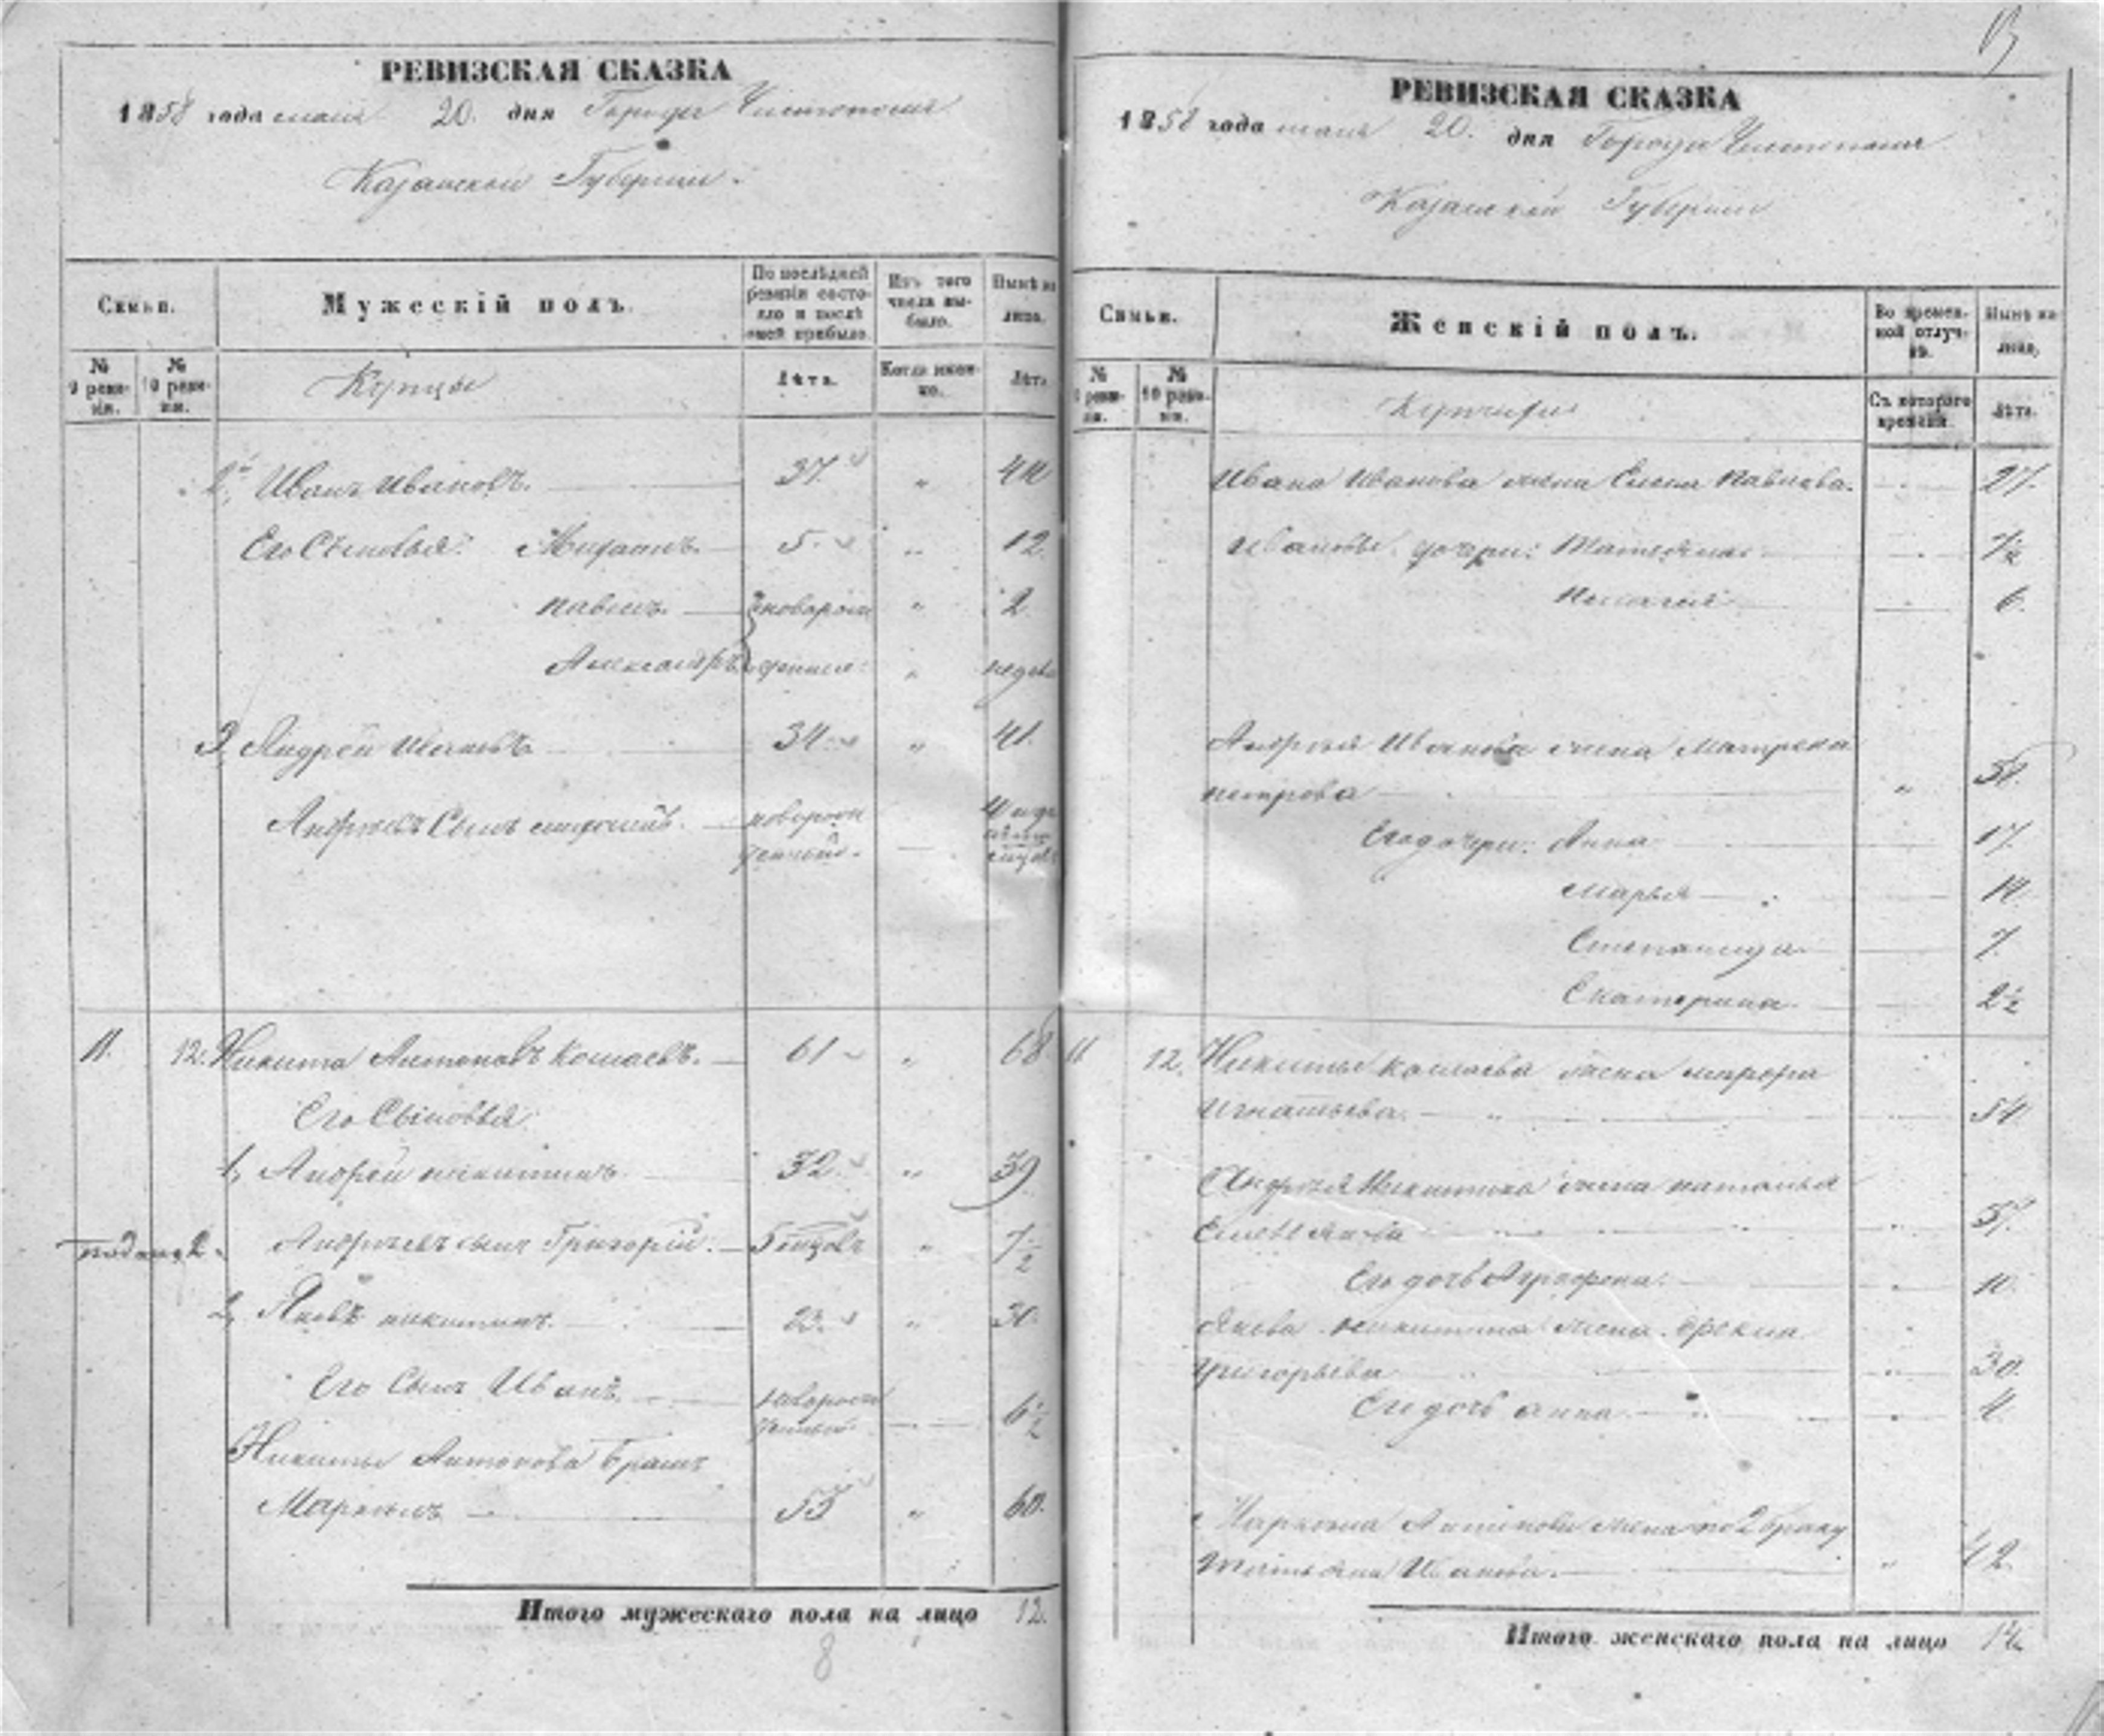 РЕВИЗСКАЯ СКАЗКА
1858 года мая 20. дня Города Чистополя
Казанской Губернии.
Семьи.
Мужескій полъ.
По послѣдней ревизіи состояло и послѣ оной прибыло.
Изъ того числа выбыло.
Нынѣ на лицо.
№ 9 ревизіи.
№ 10 ревизіи.
Купцы
Лѣта.
Когда именно.
Лѣта.
2. Иванъ Ивановъ. 37. " 44
Его Сыновья: 5. " 12.
Павелъ новорож " 2.
Александръ денные "
3. Андрей Ивановъ 34. " 41.
Андреевъ Сынъ новорож
денный.
11. 12. Никита Антоновъ 61 " 68
Его Сыновья
1, Андрей Никитинъ 32. " 39
Андреевъ сынъ Григорій. " 7 1/2
2, Яковъ Никитинъ. 23. " 30.
Его Сынъ Иванъ новорож
денный 6 1/2
Никиты Антонова братъ
Маркелъ 53 " 60.
Итого мужескаго пола на лицо 12.
8
13
РЕВИЗСКАЯ СКАЗКА
1858 года мая 20. дня Города Чистополя
Казанской Губерніи
Семьи.
Женскій полъ.
Во временной отлучкѣ.
Нынѣ на лицо.
№ 9 ревизіи.
№ 10 ревизіи.
Съ котораго времени.
Лѣта.
Ивана Иванова жена Елена Павлова. 27.
Ивановы дочери: Татьяна
Пелагея 6.
Андрея Иванова жена Матрена
Петрова "
Его дочери: Анна 17.
Марья 14.
Степанида 7.
Екатерина 2 1/2
11 12. Никиты жена
Игнатьева. 54
Андрея Никитина жена Наталья
37.
Его дочь Аграфена. 10.
Якова Никитина жена
Григорьева 30.
Его дочь Анна 4.
Маркела Антонова жена по 2 браку
Татьяна Иванова. " 42.
Итого женскаго пола на лицо 14.